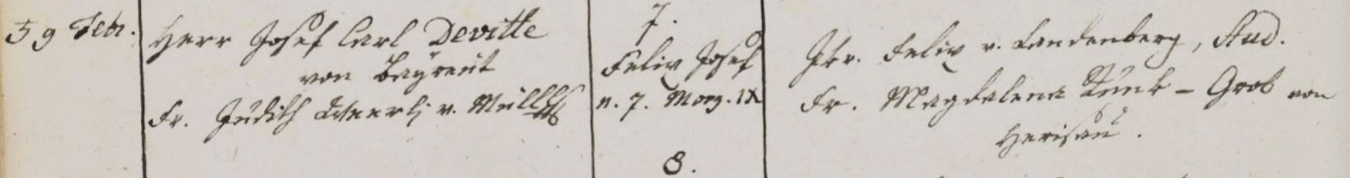 5 9 Febr.
Herr Josef Carl Devitte
von Bayreut
Fr. Judith Meerli v. Müllh
7.
Felix Josef
n. 7. Morg. IX
8.
Jkr. Felix v. Landenberg, Stud.
Fr. Magdalena Kunk - Grob von
Herisau.